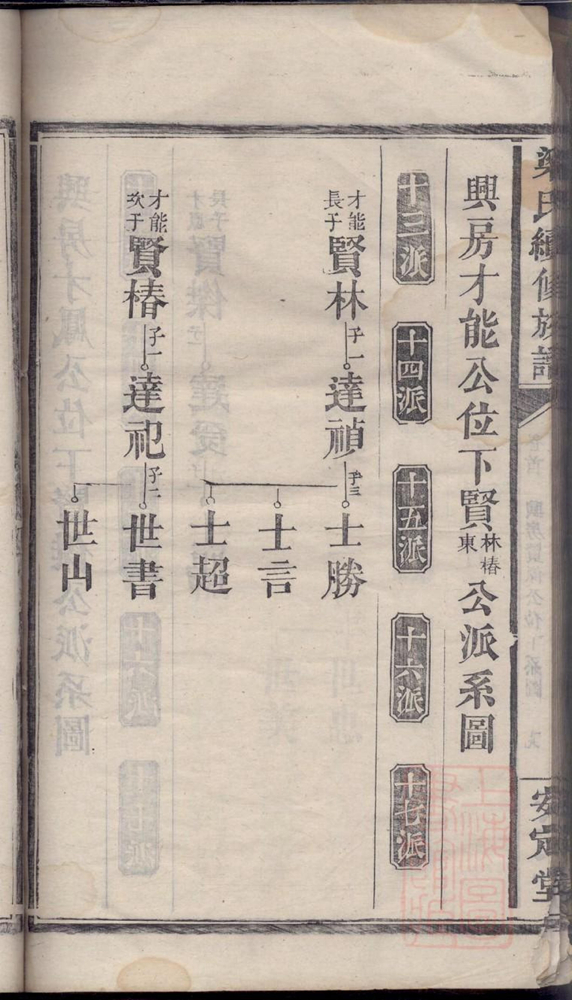 梁氏續修族譜
安定堂
興房才能公位下賢林椿東公派系圖
十三派
十四派
十五派
十六派
十七派
才能長子賢林
子一
達禎
子三
士勝
士言
士超
才能次子賢椿
子一
達祀
子二
世書
世山